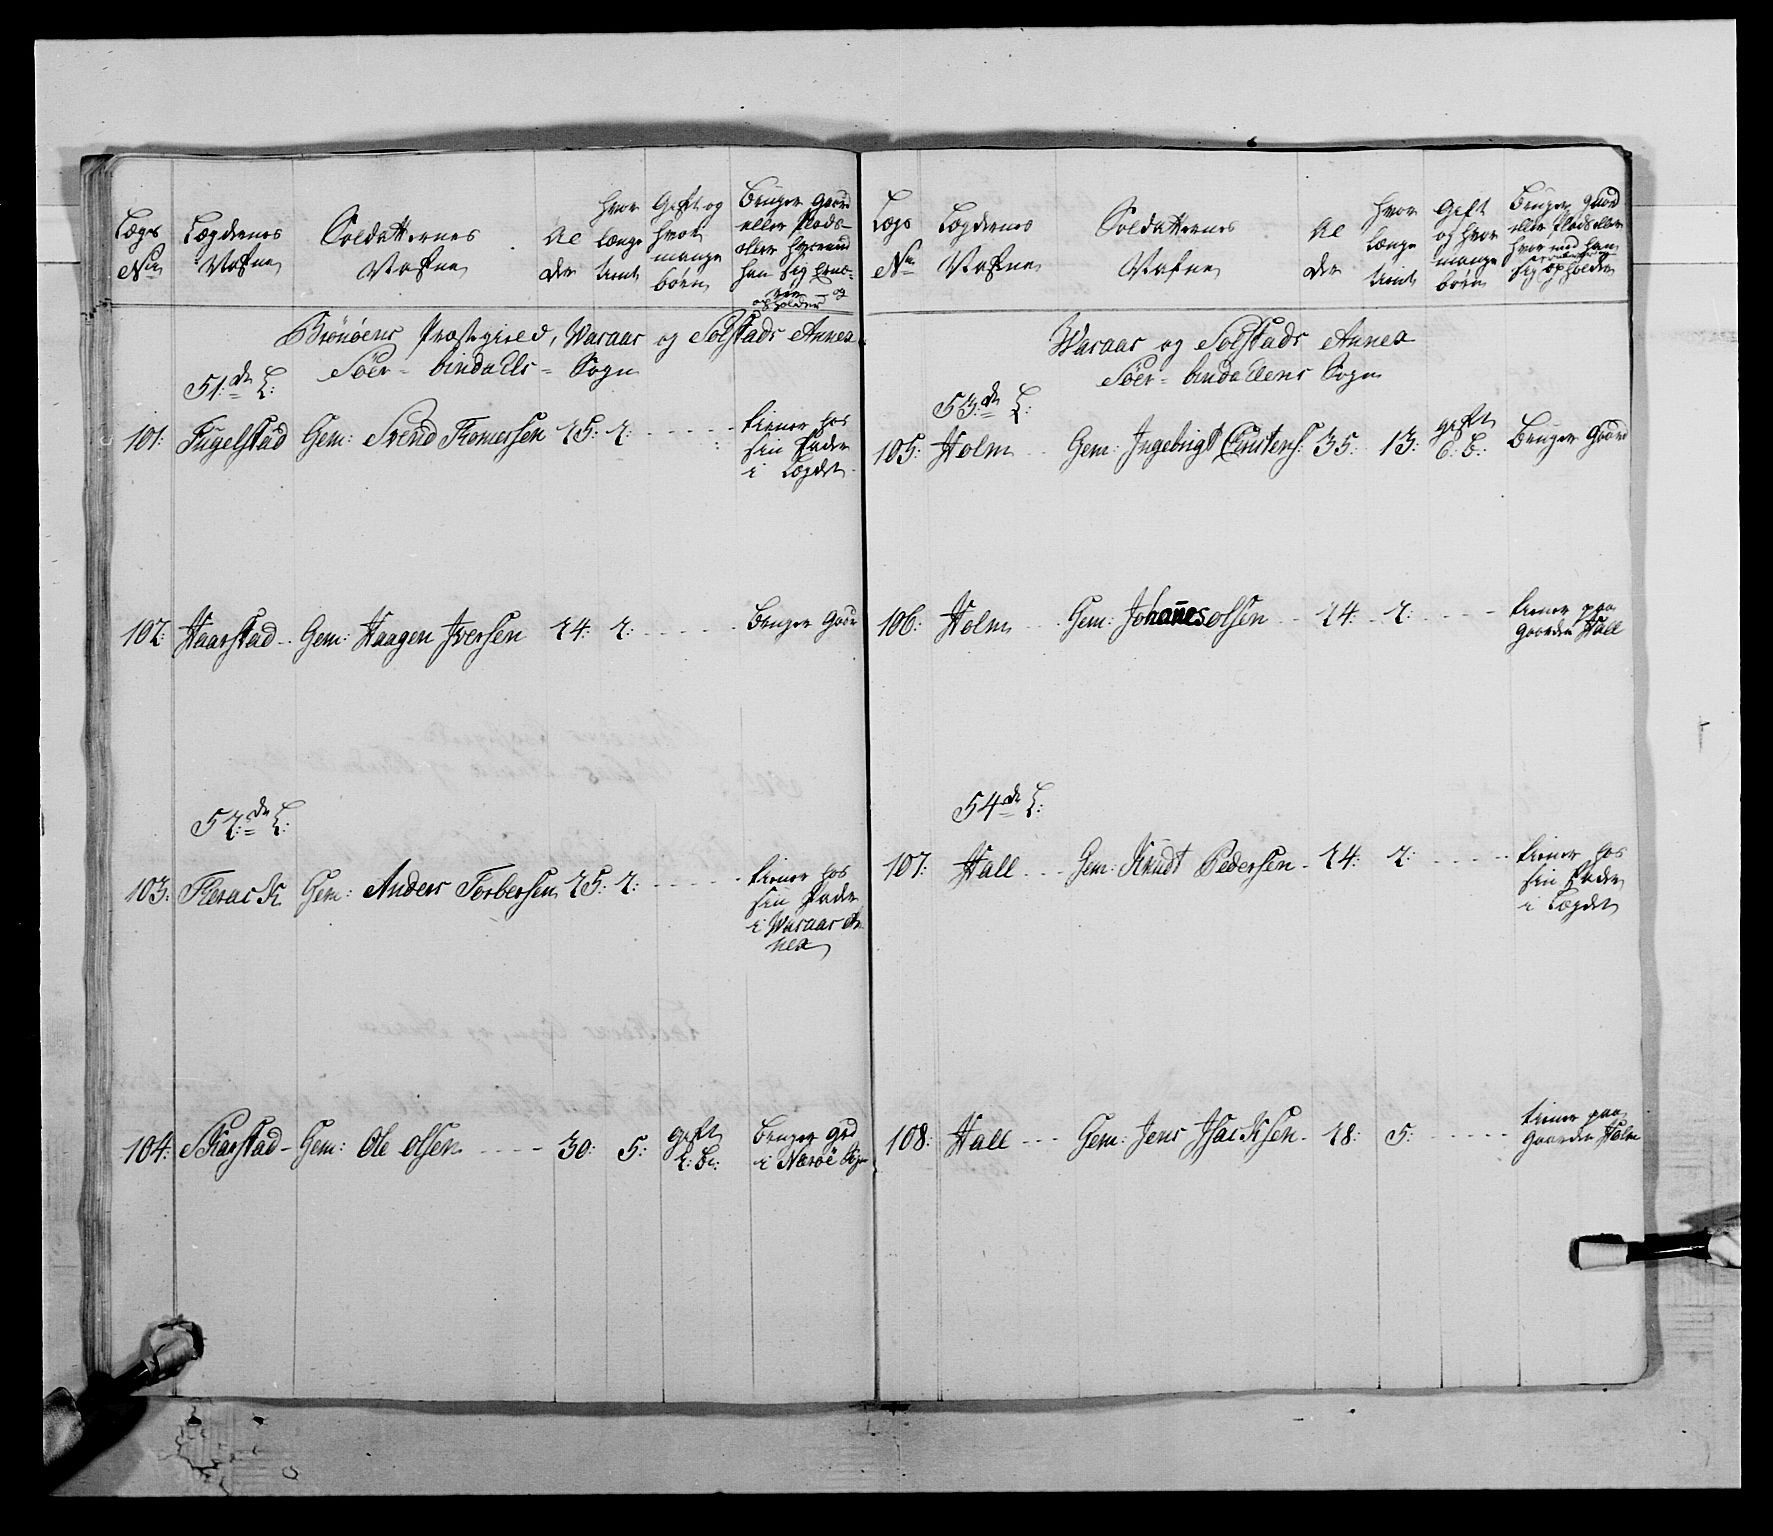 Lægs No
Lægdernes Nafne
Soldatternes Nafne
Alder
Hvor længe tient
Gift og hvor mange børn
Bruger Gaard
eller Plads
eller hvormed
han sig
opholder
Brönöens Præstegield, Waraas og Solstads Annex
Söer-bindalls-Sogn
51: de L:
101: Fugelstad Gem: Svend Thomersen 25: 2: tiener hos
sin Fader
i Lægdet
102: Haarstad Gem: Haagen Iversen 24: 2: Bruger Gaard
52: de L:
103: Terack Gem: Anders Torbersen 25: 2: tiener hos
sin Fader
i Waraas An-
nex
104: Skarstad Gem: Ole Olsen 30: 5: gift
2: B: Bruger grd
i Nærøe Sogn
Lægs No
Lægdernes Nafne
Soldatternes Nafne
Alder
Hvor længe tient
Gift og hvor mange børn
Bruger Gaard
eller Plads eller
hvormed han
sig opholder
Waraas og Solstads Annex
Söer-bindallens Sogn
53: de L:
105: Holm Gem: Ingebrigt Christens: 35: 13: gift
6: B: Bruger Gaard
106: Holm Gem: Johannes Olsen 24: 2: tiener paa
Gaarden Hall
54 de L:
107: Hall Gem: Knudt Pedersen 24: 2: tiener hos
sin Fader
i Lægdet
108: Hall Gem: Jens Isacksen 28: 5: tiener paa
Gaarden Holm